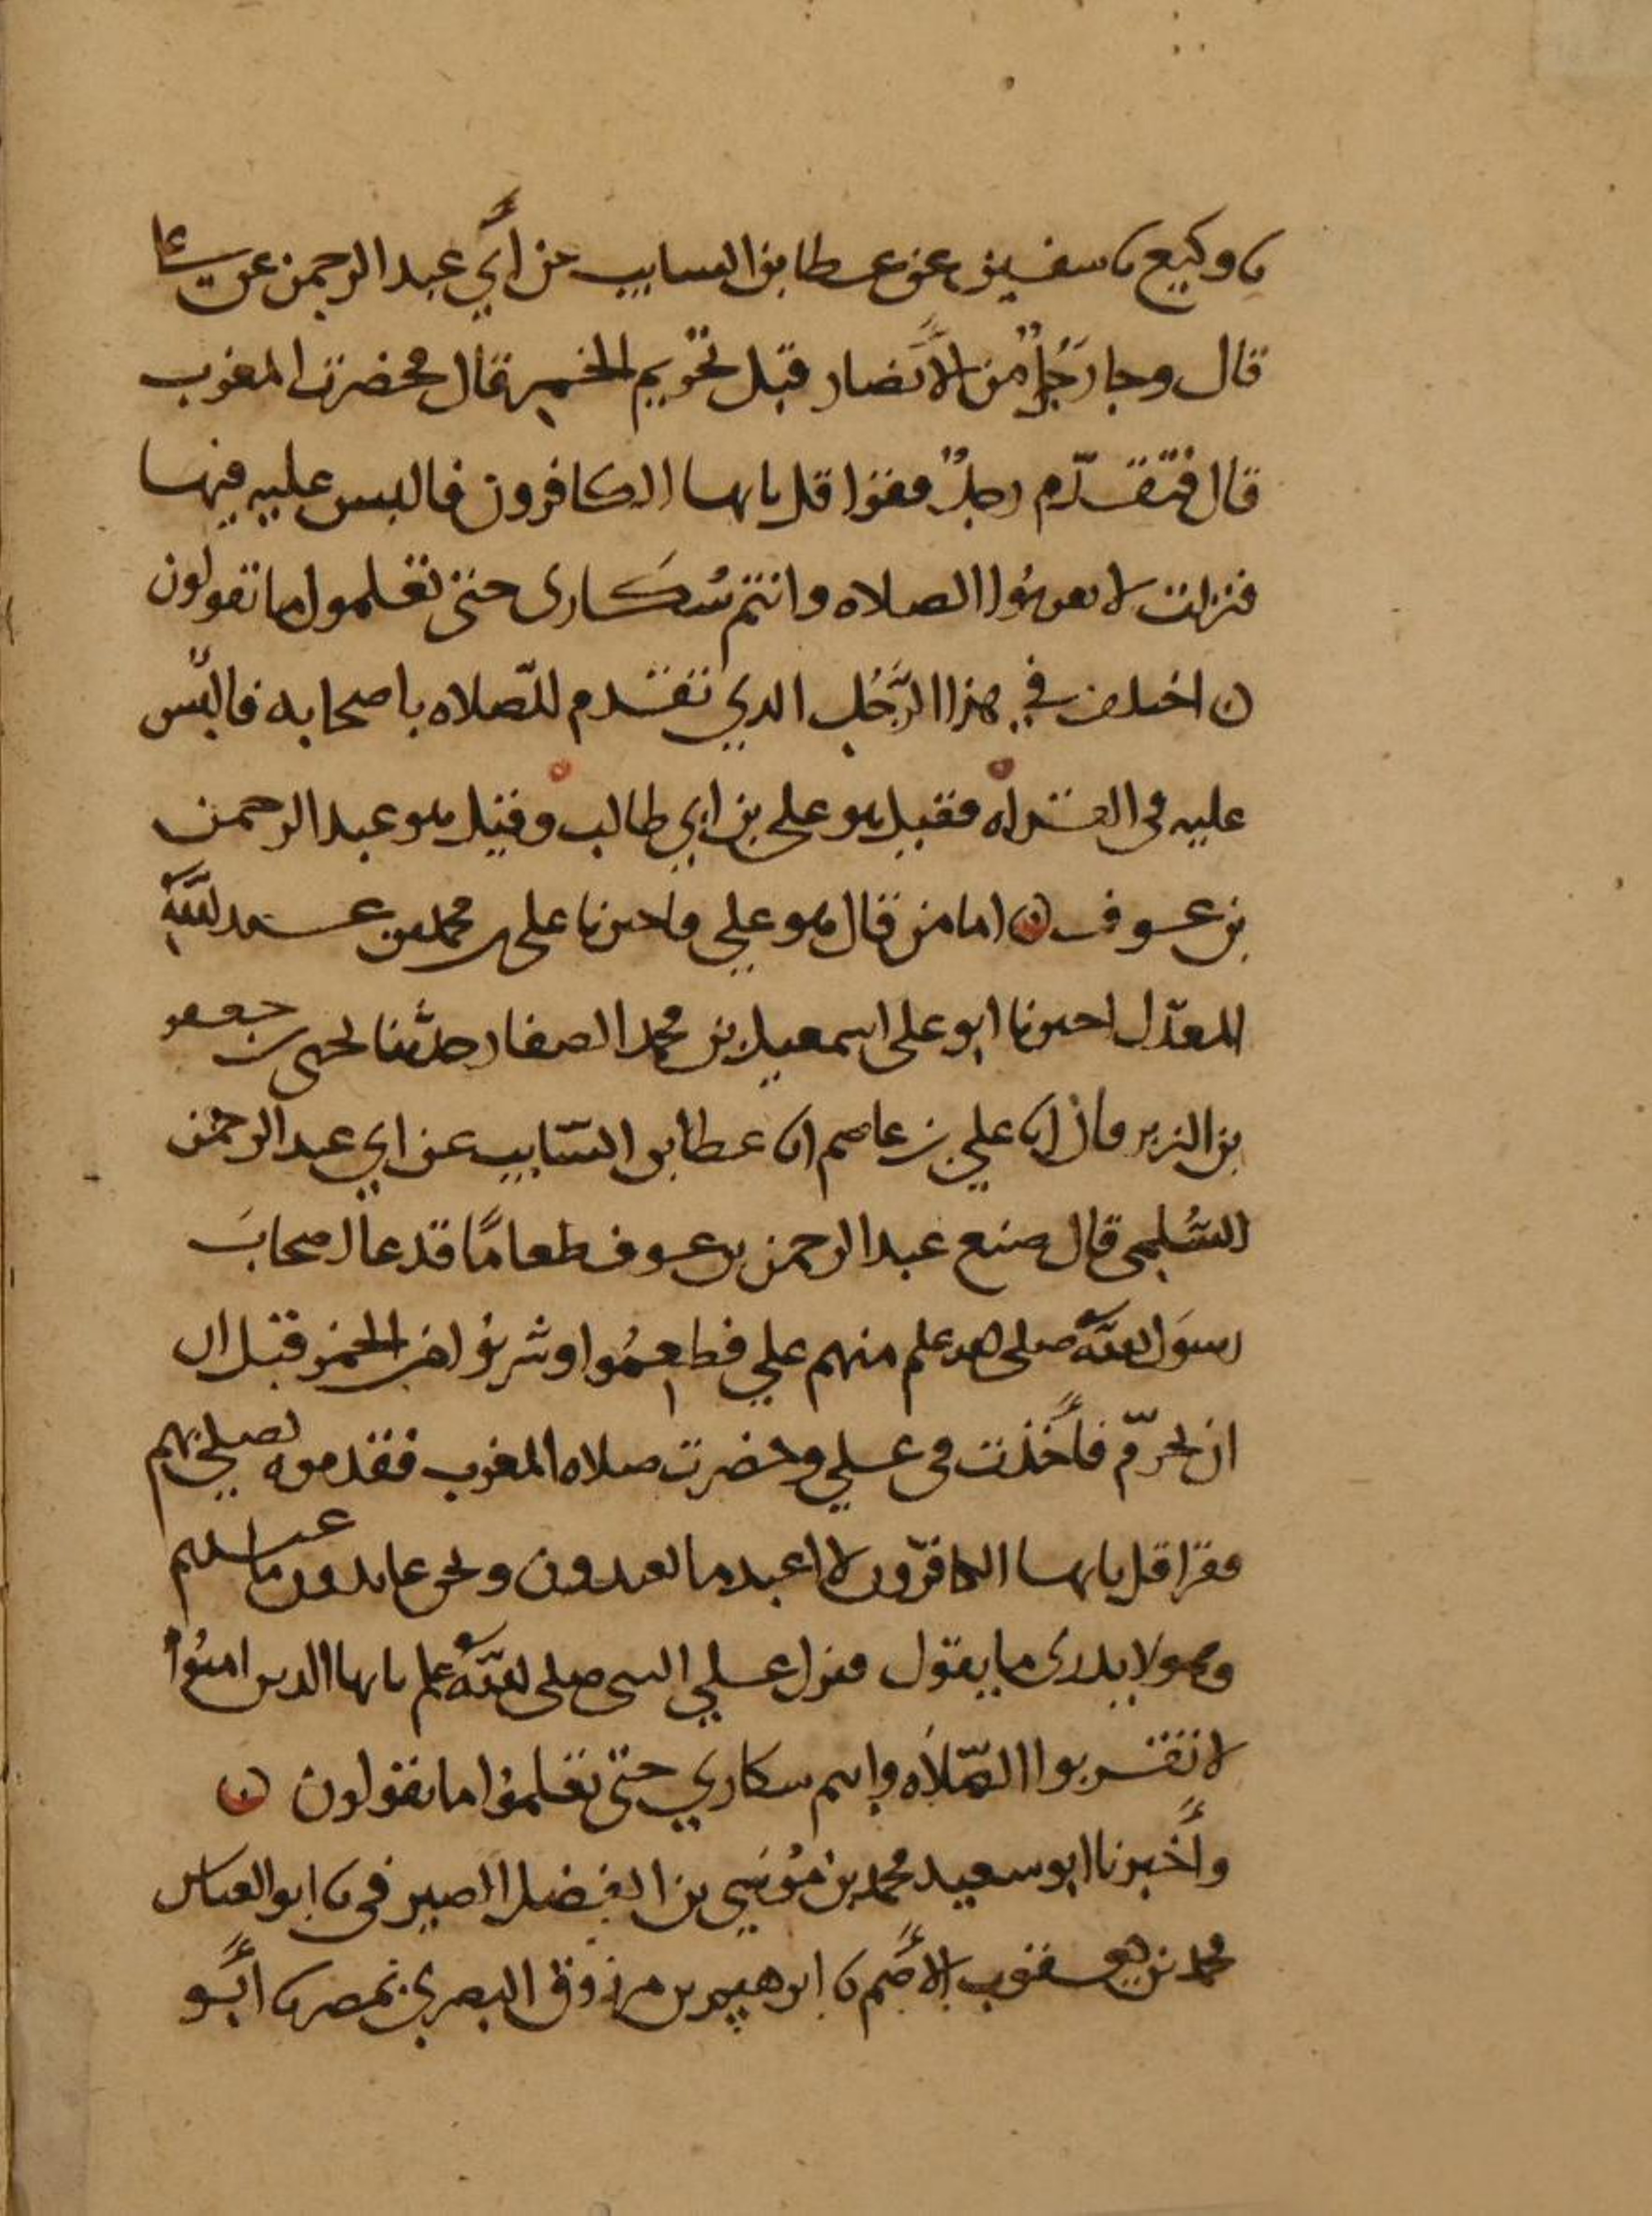 نا وكيع نا سفين عن عطا بن السايب عن أبي عبد الرحمن عن علي
قال وجا رجُلٌ من الأنصار قبل تحريم الخمر قال فحضرت المغرب
قال فتقدّم رجلٌ فقرا قل يايها الكافرون فالبس عليه فيها
فنزلت لا تقربُوا الصلاه وانتم سُكارى حتى تعلموا ما تقولون
ن اختلف في هذا الرَّجُل الذي تقدم للصّلاه باصحابه فالبّس
عليه في القراه فقيل هو علي بن ابي طالب وقيل هو عبد الرحمن
بن عوف ن اما من قال هو علي فاخبرنا علي بن محمد بن عبد اللَّه
المعدّل اخبرنا ابو علي اسمعيل بن محمد الصفار حدّثنا يحيى بن جعفر
بن الزبير قال انا علي بن عاصم انا عطا بن السّايب عن ابي عبد الرحمن
السُّلمي قال صنع عبد الرحمن بن عوف طعامًا فدعا اصحابَ
رسوَل اللَّه صلى الله علم منهم علي فطعِمُوا وشربوا من الخمر قبل ان
ان يحرّم فأخذت في علي وحضرت صلاه المغرب فقدموه يصلي بهم
فقرا قل يايها الكافرون لا اعبد ما تعبدون ونحن عابدون ما عبدتم
وهو لا يدرى ما يقول فنزل علي النبي صلى اللَّه علم يايها الذين امنُوا
لا تقربوا الصّلاَه وانتم سكاري حتّى تعلمُوا ما تقولون ن
وأخبرنا ابو سعيد محمد بن مُوسَي بن الفضل الصيرفي نا ابو العباس
محمد بن يعقوب الأصَم نا ابرهيم بن مرزوق البصري بمصر نا أبو